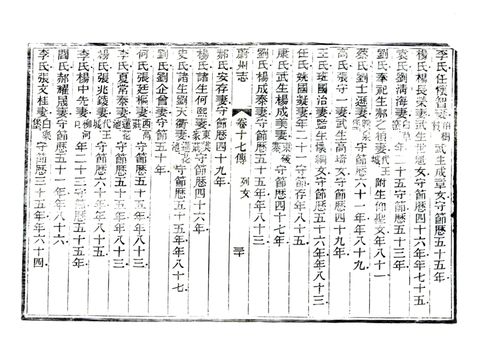 李氏任懷智妻 武生成章女守節歷五十五年
楊氏楊長榮妻武生 女守節歷四十六年年七十五
袁氏劉清海妻 年二十五守節歷五十年
劉氏奉祀生郝之楨妻代王城附生 聖文女年八十一
蔡氏劉士選妻 守節歷六十一年年八十三
高氏張守一妻武生高培女守節歷四十九年
王氏班國治妻監生 女守節歷五十六年年八十三
任氏姚國 妻年二十一守節存年八十五
康氏武生楊成 妻 守節歷四十四年
劉氏楊成泰妻守節歷五十五年年八十三
蔚州志
卷十七傳
列女
三十
郝氏安存妻守節歷四十九年
楊氏諸生何熙妻 守節歷四十六年
史氏諸生劉天衢妻蓮花池守節歷五十五年年八十七
劉氏劉企曾妻守節五十年
何氏張廷樞妻西高 守節歷五十五年年八十三
李氏夏常泰妻 守節歷五十五年年八十三
楊氏張兆錢妻代王城守節歷五十五年
李氏楊中先妻 年二十三守節歷五十五年
閻氏郝耀晟妻守節歷五十一年年八十六
李氏張文桂妻白樂守節歷三十五年年六十四